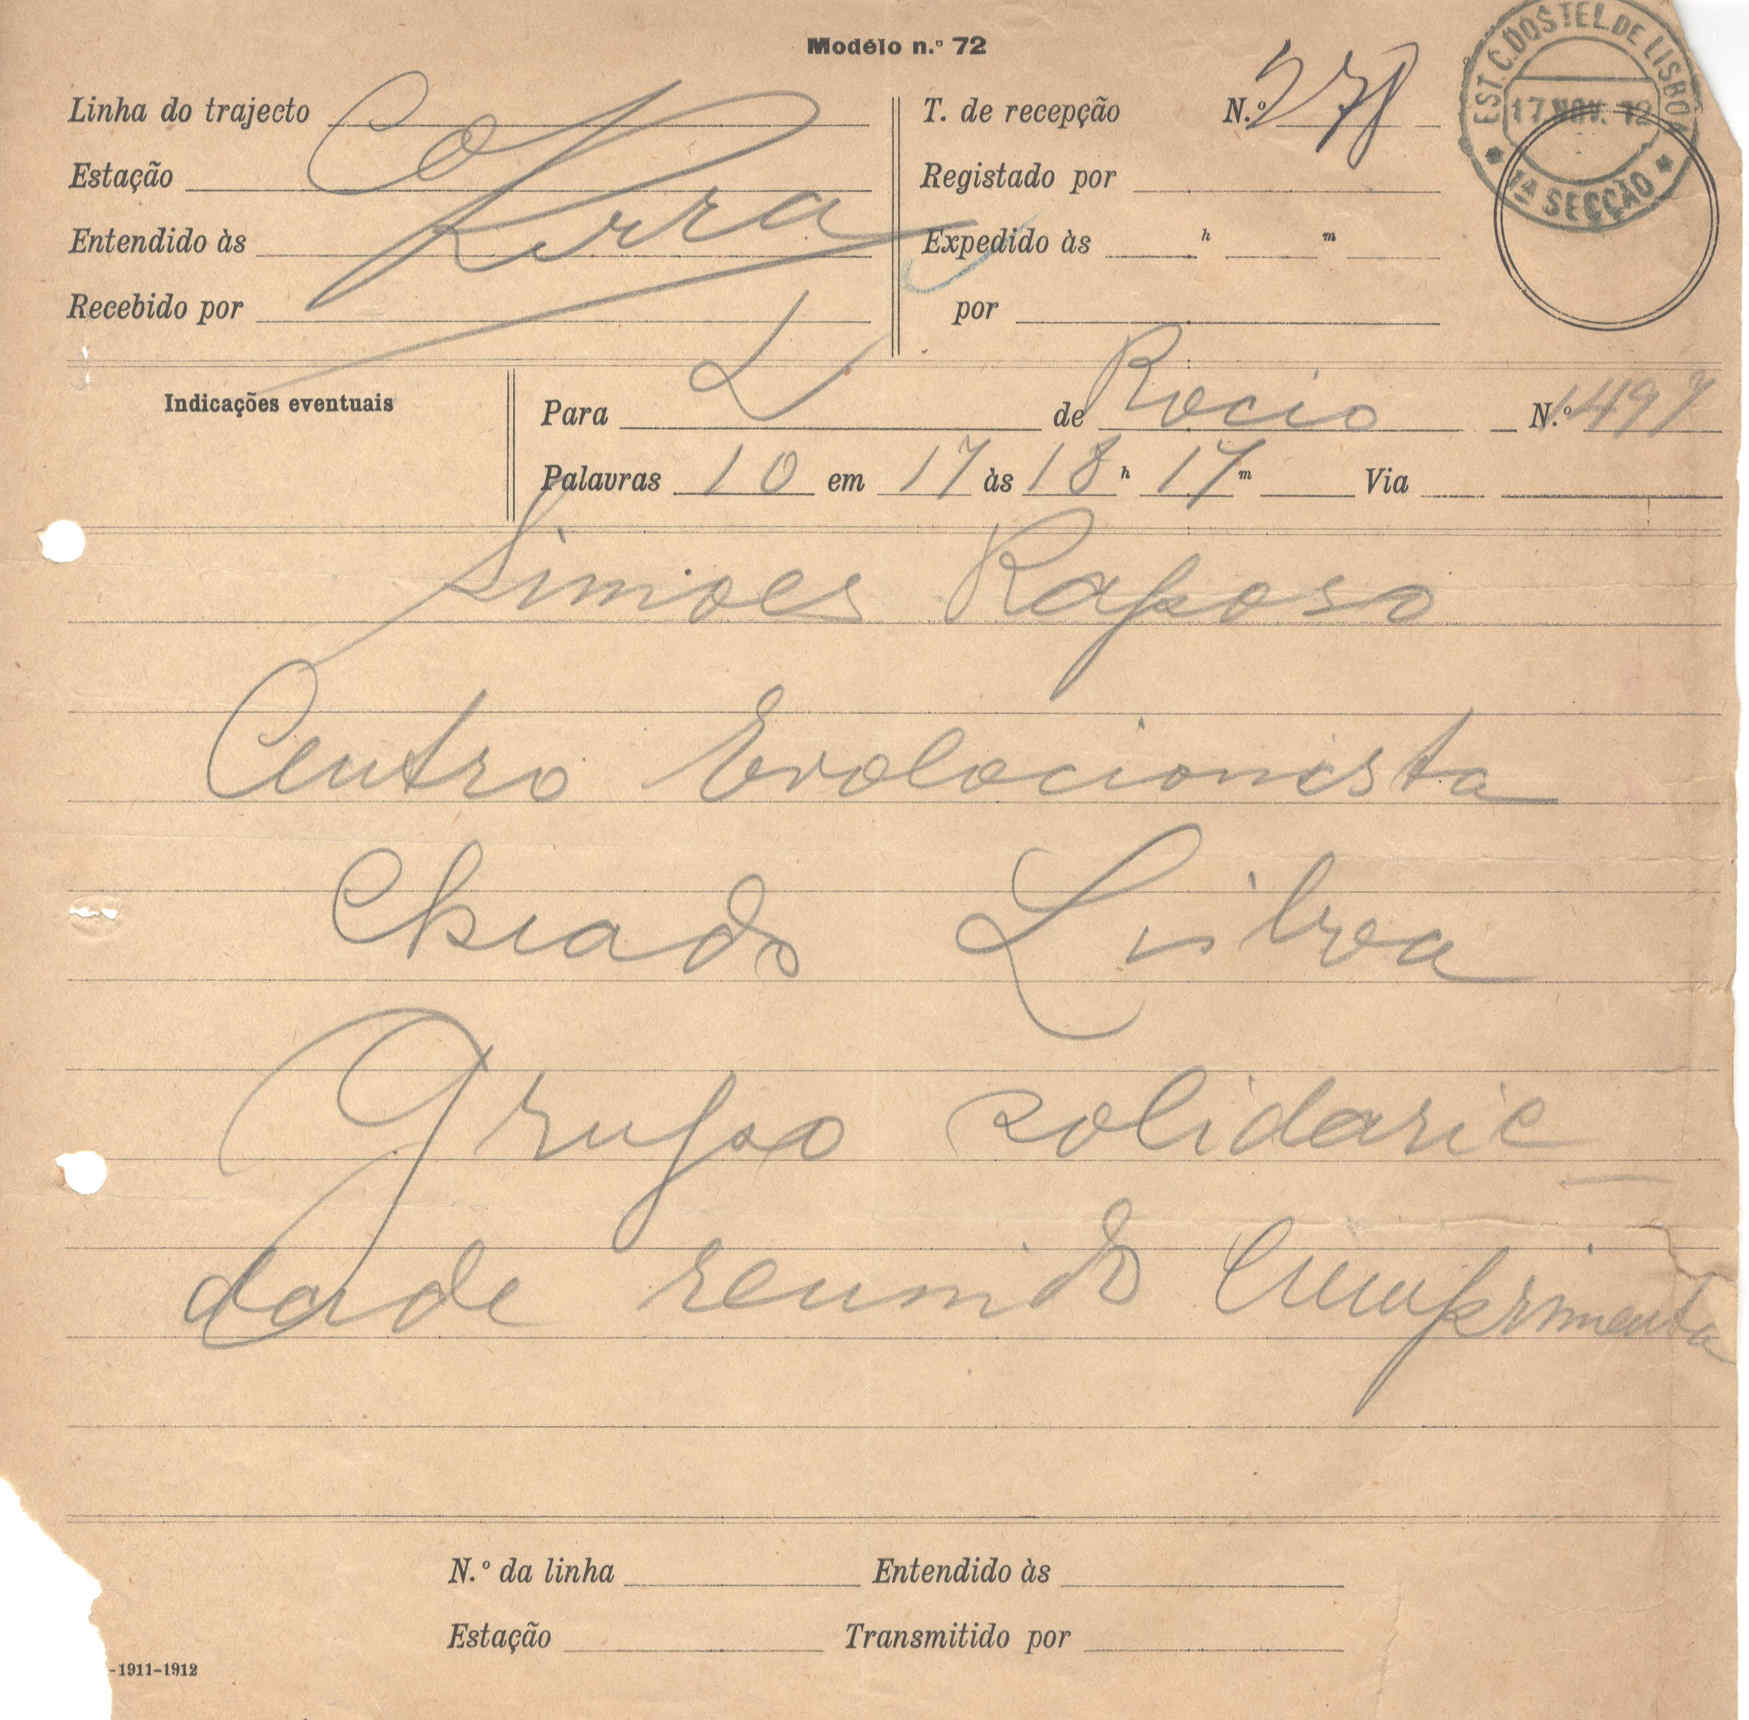 Modélo n.º 72
EST. C. DOS TEL. DE LISBOA
17 NOV. 12
1ª SECÇÃO
Linha do trajecto
Estação
Entendido às
Recebido por
T. de recepção N.º 278
Registado por
Expedido às h m
por
Indicações eventuais
Para L de Rocio N.º 1497
Palavras 10 em 17 às 18 h 17 m Via
Simoes Raposo
Centro Evolocionista
Chiado Lisboa
Grupo solidarie
dade reunido Cumprimenta
N.º da linha Entendido às
Estação Transmitido por
-1911-1912